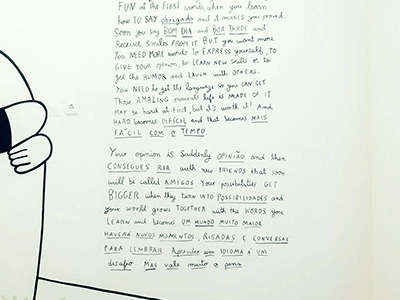 FUN at the FIRST words, when you learn
how to SAY obrigado and it makes you proud
Soon you say BOM DIA and BOA TARDE and
Receive Smiles FROM IT. BUT you want more.
You NEED MORE words to EXPRESS yourself, TO
GIVE YOUR opinion, to LEARN NEW Skills or to
get the HUMOR and LAUGH with OTHERS.
You NEED to get the language so you CAN GET
Those AMAZING moments life is MADE OF IT
MAY be hard at First, but it's worth it! And
HARD becomes DIFÍCIL and that becomes MAIS
FÁCIL COM O TEMPO.
Your opinion is Suddenly OPINIÃO and then
CONSEGUES RIR with new FRIENDS that soon
will be called AMIGOS. Your possibilities GET
BIGGER when they turn into POSSIBILIDADES and
your world grows TOGETHER with the WORDS you
LEARN and becomes UM MUNDO MUITO MAIOR
HAVERÁ NOVOS MOMENTOS, RISADAS E CONVERSAS
PARA LEMBRAR. Aprender um IDIOMA É UM
desafio. Mas vale muito a pena.